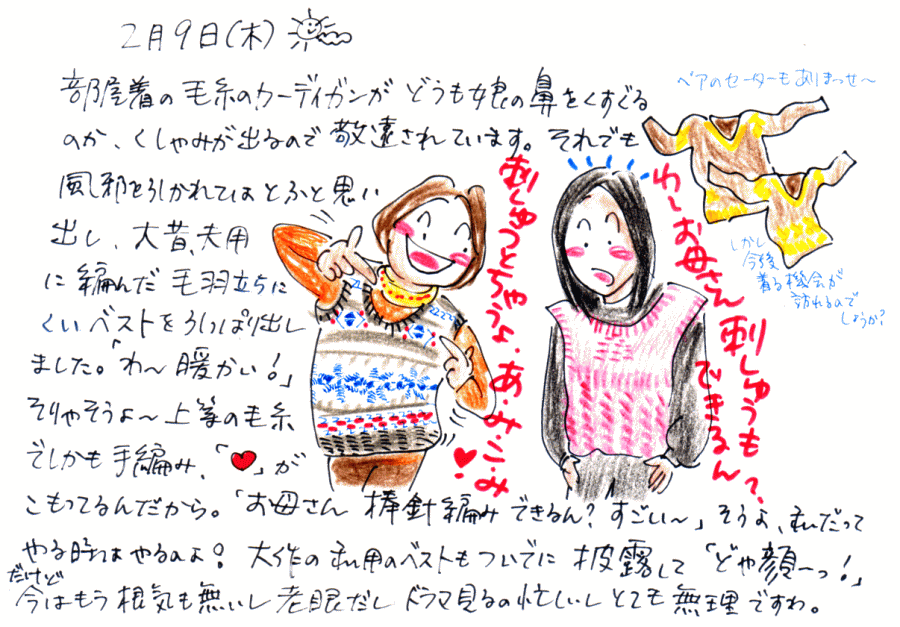 2月9日(木)
部屋着の毛糸のカーディガンがどうも娘の鼻をくすぐる
のか、くしゃみが出るので敬遠されています。それでも
風邪を引かれてはとふと思い
出し、大昔、夫用
に編んだ毛羽立ちに
くいベストを引っぱり出し
ました。「わ〜暖かい!」
そりゃそうよ〜上等の毛糸
でしかも手編み、「♥」が
こもってるんだから。「お母さん 棒針編みできるん?すごい〜」そうよ、私だって
やる時はやるのよ!大作の私用のベストもついでに披露して「どや顔ーっ!」
だけど
今はもう根気も無いし老眼だしドラマ見るの忙しいしとても無理ですわ。
わ〜お母さん刺しゅうも
できるん?
刺しゅうとちゃうよ・あ・み・こ・み
♥
ペアのセーターもありまっせ〜
しかし
今後
着る機会が
訪れるので
しょうか?